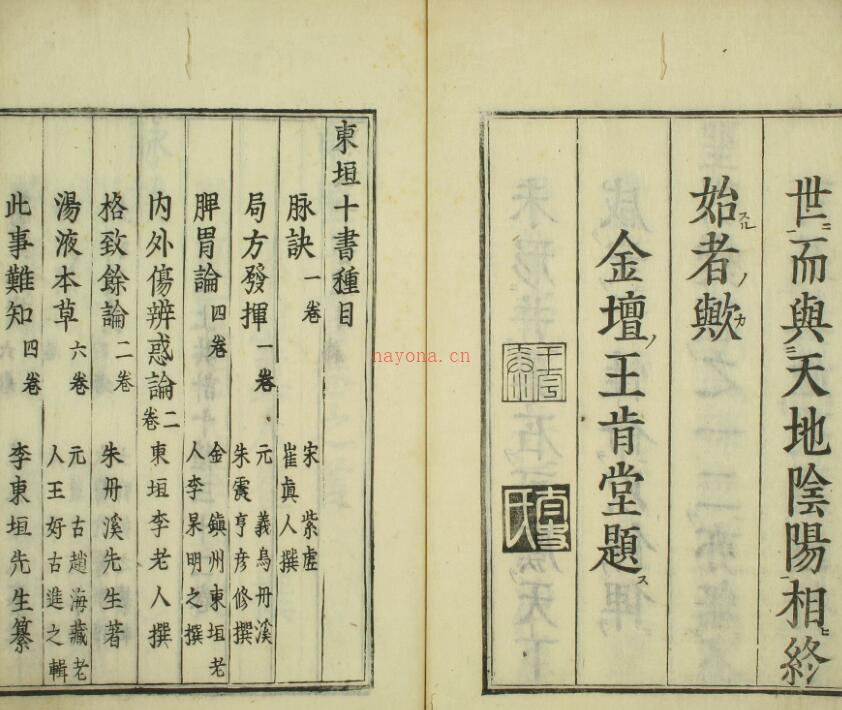 世而與天地陰陽相終
始スル者ノ歟カ
金壇ノ王肯堂題ス
東垣十書種目
脉訣 一卷 宋 紫虛崔眞人撰
局方發揮 一卷 元 義烏丹溪朱震亨彥修撰
脾胃論 四卷 金 鎭州東垣老人李杲明之撰
内外傷辨惑論 二卷 東垣李老人撰
格致餘論 二卷 朱丹溪先生著
湯液本草 六卷 元 古趙海藏老人王好古進之輯
此事難知 四卷 李東垣先生纂
nayona.cn